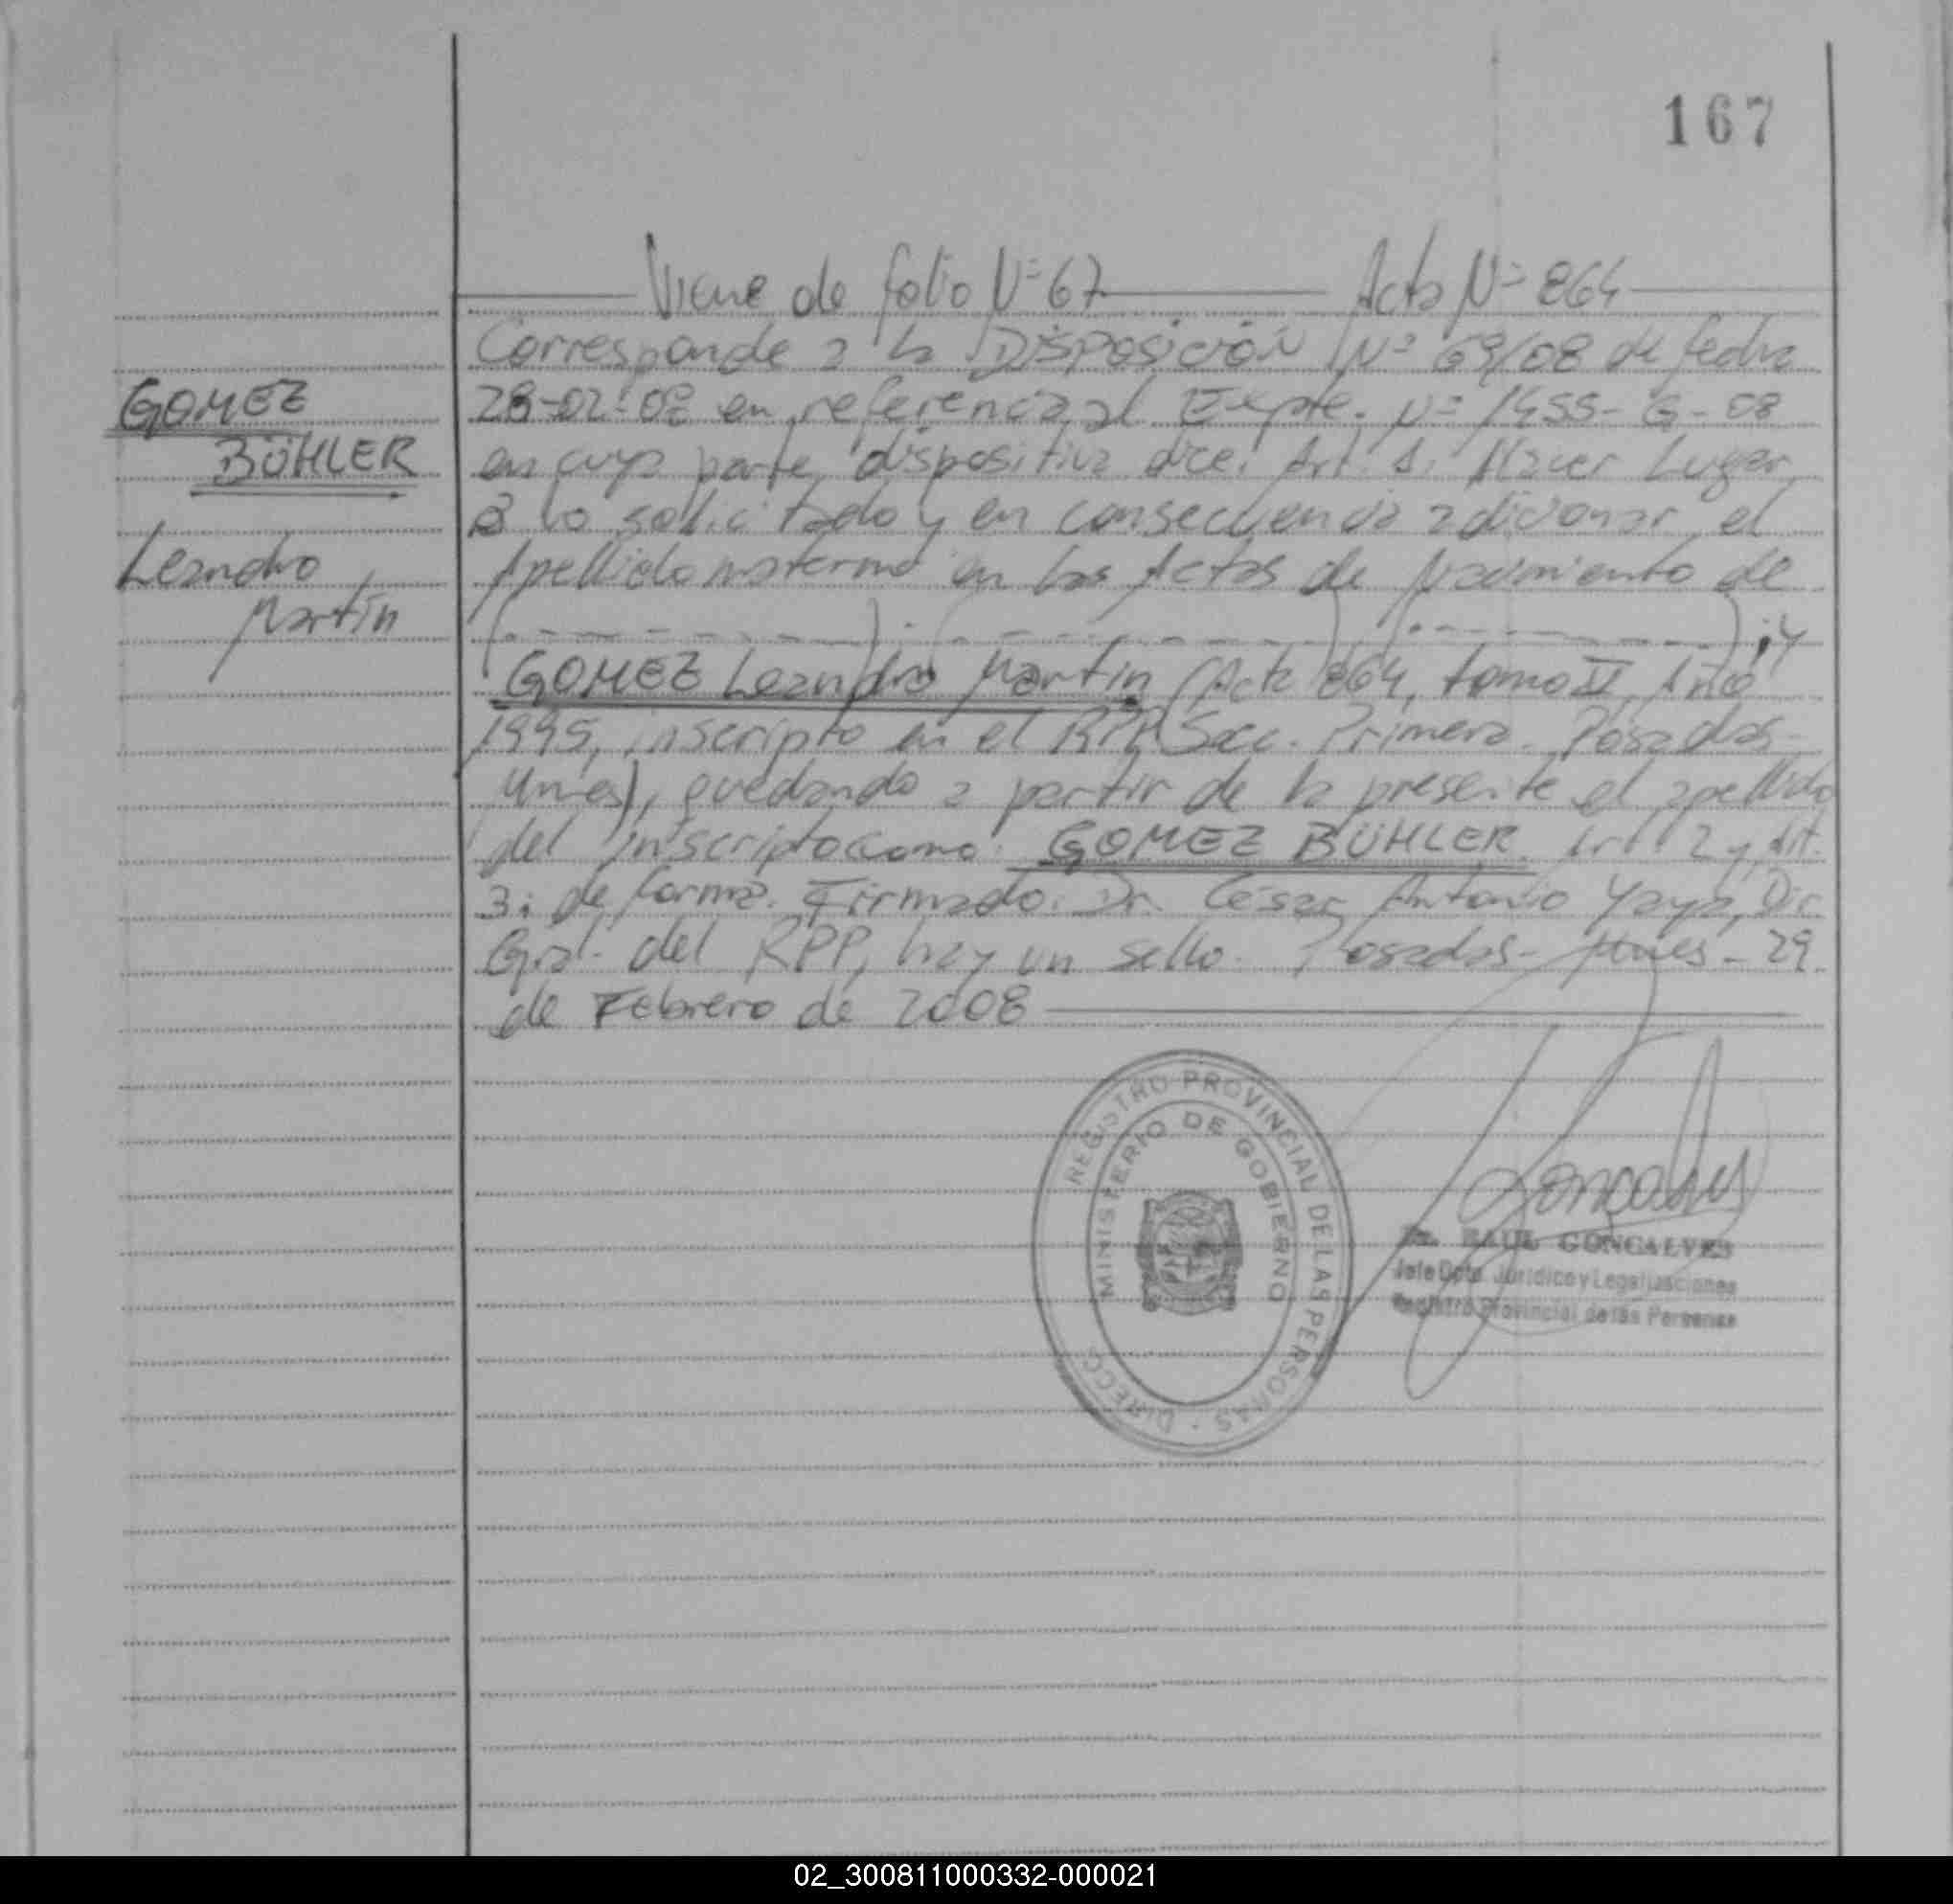 167
Viene de folio Nº 67 Acta Nº 864
Corresponde a la Disposición Nº 69/08 de fecha
28-02-08 en referencia al Expte. Nº 1455-G-08
en cuya parte dispositiva dice: Art. 1: Hacer Lugar
a lo solicitado y en consecuencia adicionar el
Apellido materno en las Actas de Nacimiento de
(. - - - - - - -) (. - - - - - - -) (. - - - - - - -) ; y
GOMEZ Leandro Martín (Acta 864, tomo II, Año
1995, inscripto en el RPP Secc. Primera. Posadas-
Mnes), quedando a partir de la presente el apellido
del inscripto como: GOMEZ BÜHLER. Art 2 y Art.
3: de forma. Firmado: Dr. César Antonio Yaya, Dir.
Gral. del RPP, hay un sello. Posadas- Mnes - 29
de Febrero de 2008
GOMEZ
BÜHLER
Leandro
Martín
REGISTRO PROVINCIAL DE LAS PERSONAS - DIRECC
MINISTERIO DE GOBIERNO
Goncalves
Dr. RAUL GONCALVES
Jefe Dpto. Jurídico y Legalizaciones
Registro Provincial de las Personas
02_300811000332-000021